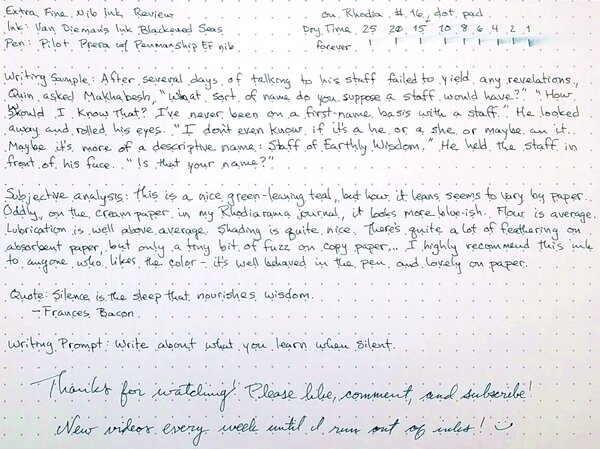 Extra Fine Nib Ink Review
on Rhodia #16 dot pad
Ink: Van Dieman's Ink Blackened Seas
Dry Time 25 20 15 10 8 6 4 2 1
Pen: Pilot Prera w/ Penmanship EF nib
forever
Writing Sample: After several days of talking to his staff failed to yield any revelations,
Quin asked Makhabesh, "What sort of name do you suppose a staff would have?" "How
should I know that? I've never been on a first-name basis with a staff." He looked
away and rolled his eyes. "I don't even know if it's a he or a she or maybe an it.
Maybe it's more of a descriptive name: Staff of Earthly Wisdom." He held the staff in
front of his face. "Is that your name?"
Subjective analysis: This is a nice green-leaning teal, but how it leans seems to vary by paper.
Oddly, on the cream paper in my Rhodiarama journal, it looks more blue-ish. Flow is average.
Lubrication is well above average. Shading is quite nice. There's quite a lot of feathering on
absorbent paper, but only a tiny bit of fuzz on copy paper... I highly recommend this ink
to anyone who likes the color - it's well behaved in the pen and lovely on paper.
Quote: Silence is the sleep that nourishes wisdom.
- Frances Bacon
Writing Prompt: Write about what you learn when silent.
Thanks for watching! Please like, comment, and subscribe!
New videos every week until I run out of inks!